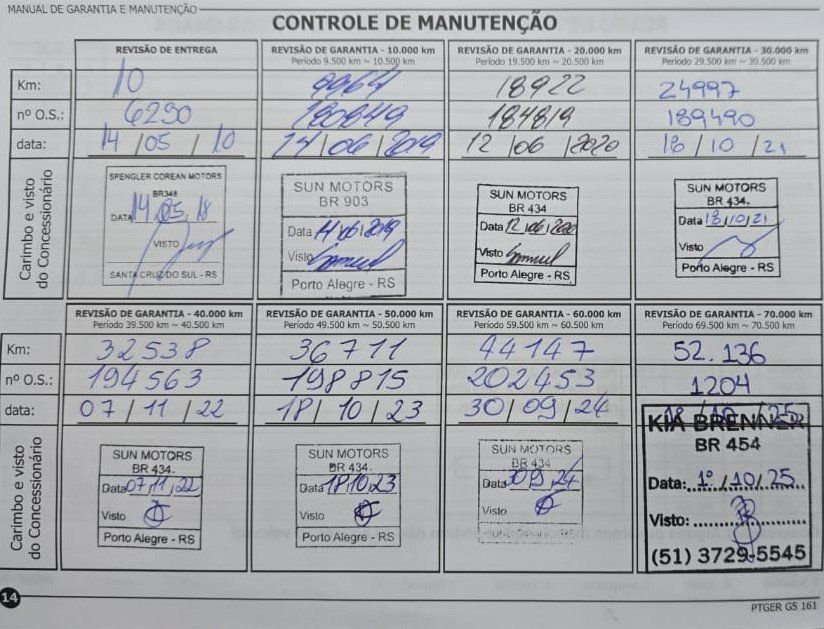 MANUAL DE GARANTIA E MANUTENÇÃO
CONTROLE DE MANUTENÇÃO
REVISÃO DE ENTREGA
REVISÃO DE GARANTIA - 10.000 km
Período 9.500 km ~ 10.500 km
REVISÃO DE GARANTIA - 20.000 km
Período 19.500 km ~ 20.500 km
REVISÃO DE GARANTIA - 30.000 km
Período 29.500 km ~ 30.500 km
Km: 10 9964 18922 24997
nº O.S.: 6290 180849 184819 189490
data: 14/05/10 14/06/2019 12/06/2020 18/10/21
Carimbo e visto
do Concessionário
SPENGLER COREAN MOTORS
BR348
DATA 14/05/18
VISTO
SANTA CRUZ DO SUL - RS
SUN MOTORS
BR 903
Data 14/06/2019
Visto
Porto Alegre - RS
SUN MOTORS
BR 434
Data 12/06/2020
Visto
Porto Alegre - RS
SUN MOTORS
BR 434.
Data 18/10/21
Visto
Porto Alegre - RS
REVISÃO DE GARANTIA - 40.000 km
Período 39.500 km ~ 40.500 km
REVISÃO DE GARANTIA - 50.000 km
Período 49.500 km ~ 50.500 km
REVISÃO DE GARANTIA - 60.000 km
Período 59.500 km ~ 60.500 km
REVISÃO DE GARANTIA - 70.000 km
Período 69.500 km ~ 70.500 km
Km: 32538 36711 44147 52.136
nº O.S.: 194563 198815 202453 1204
data: 07/11/22 18/10/23 30/09/24
Carimbo e visto
do Concessionário
SUN MOTORS
BR 434.
Data 07/11/22
Visto
Porto Alegre - RS
SUN MOTORS
BR 434.
Data 18/10/23
Visto
Porto Alegre - RS
SUN MOTORS
BR 434
Data 30/09/24
Visto
Porto Alegre - RS
KIA BRENNER
BR 454
Data: 1º/10/25
Visto:
(51) 3729-5545
14
PTGER GS 161